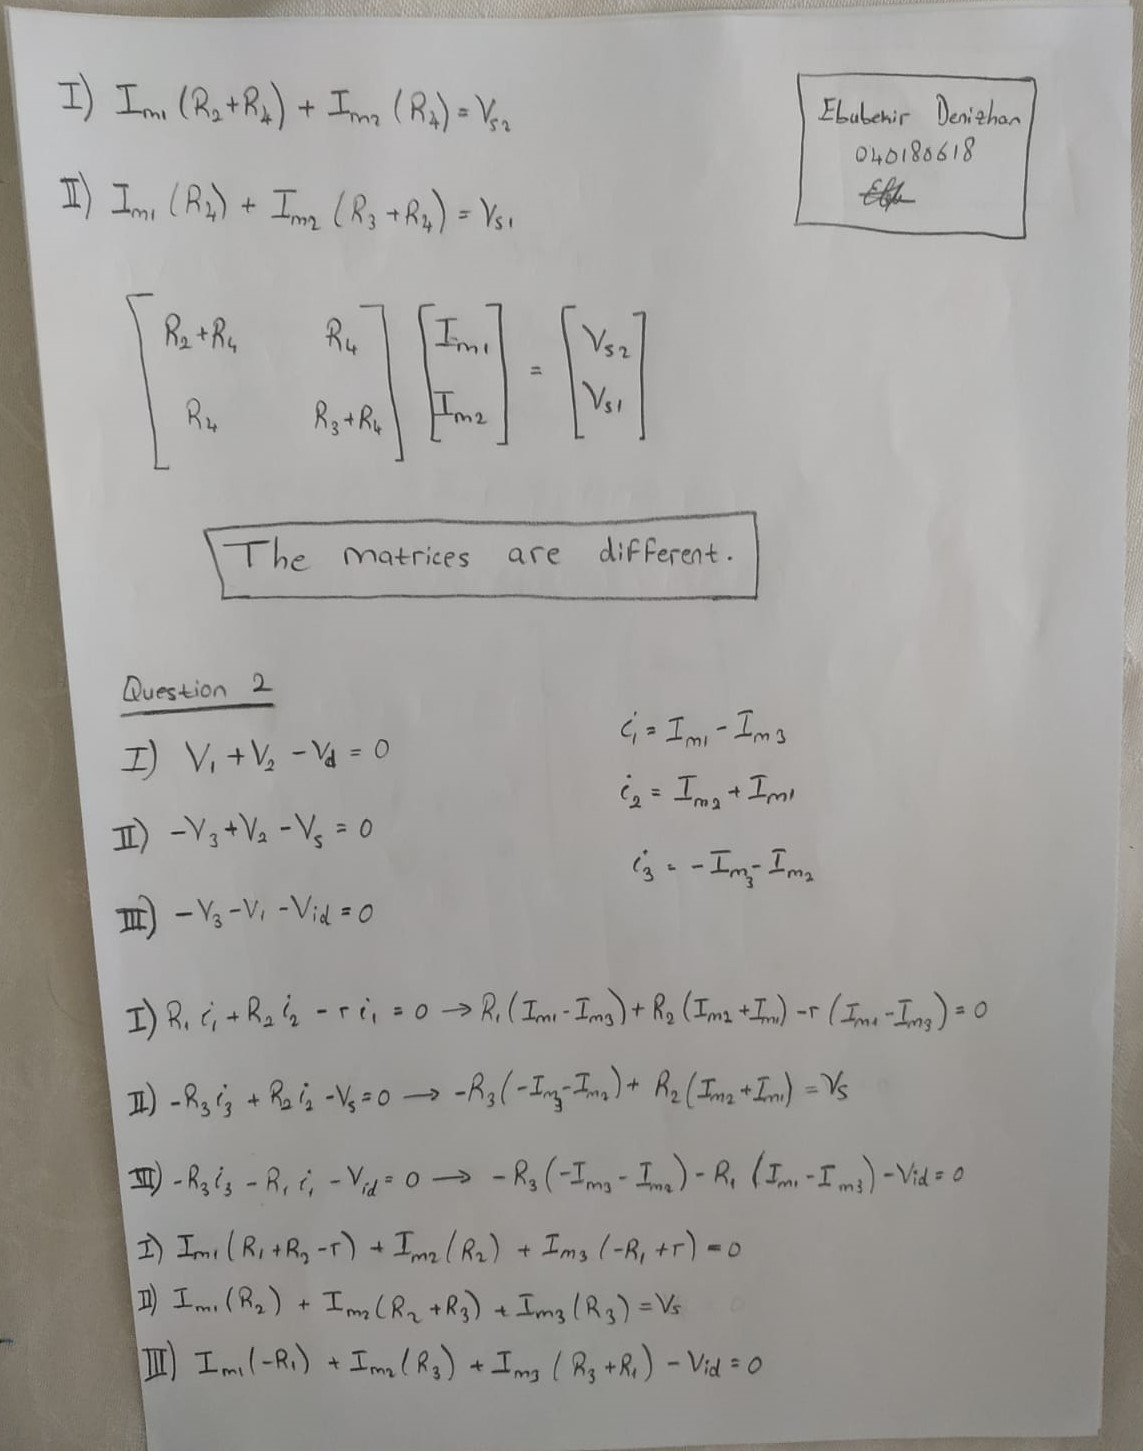 I) Im1 (R2+R4) + Im2 (R4) = Vs2
Ebubekir Denizhan
040180618
II) Im1 (R4) + Im2 (R3+R4) = Vs1
[R2+R4 R4] [Im1] = [Vs2]
[R4 R3+R4] [Im2] [Vs1]
The matrices are different.
Question 2
I) V1 + V2 - Vd = 0
II) -V3 + V2 - Vs = 0
III) -V3 - V1 - Vid = 0
i1 = Im1 - Im3
i2 = Im2 + Im1
i3 = -Im3 - Im2
I) R1 i1 + R2 i2 - r i1 = 0 → R1 (Im1 - Im3) + R2 (Im2 + Im1) - r (Im1 - Im3) = 0
II) -R3 i3 + R2 i2 - Vs = 0 → -R3 (-Im3 - Im2) + R2 (Im2 + Im1) = Vs
III) -R3 i3 - R1 i1 - Vid = 0 → -R3 (-Im3 - Im2) - R1 (Im1 - Im3) - Vid = 0
I) Im1 (R1 + R2 - r) + Im2 (R2) + Im3 (-R1 + r) = 0
II) Im1 (R2) + Im2 (R2 + R3) + Im3 (R3) = Vs
III) Im1 (-R1) + Im2 (R3) + Im3 (R3 + R1) - Vid = 0